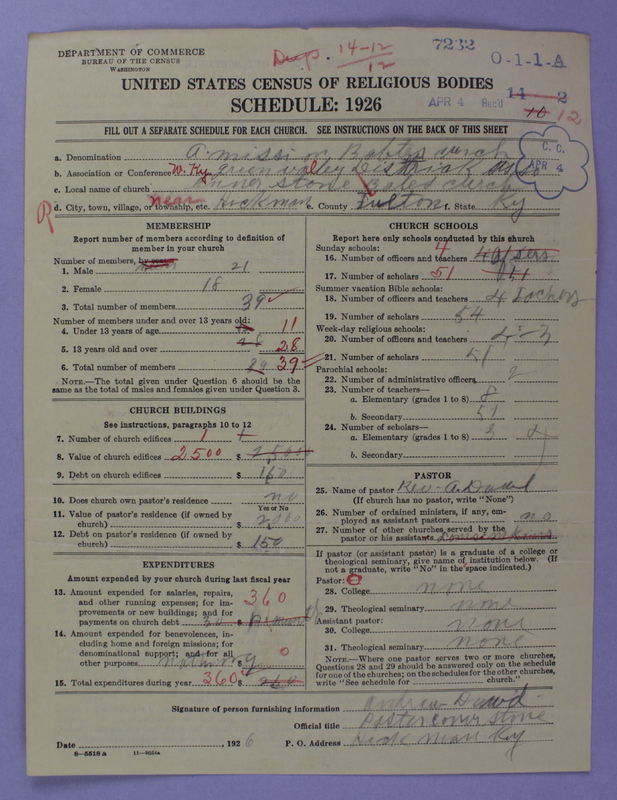 DEPARTMENT OF COMMERCE
BUREAU OF THE CENSUS
WASHINGTON
Dup. 14-12
12
7232
O-1-1-A
UNITED STATES CENSUS OF RELIGIOUS BODIES
SCHEDULE: 1926
APR 4 Rec'd
14 2
10 12
FILL OUT A SEPARATE SCHEDULE FOR EACH CHURCH. SEE INSTRUCTIONS ON THE BACK OF THIS SHEET
C. C.
APR 4
a. Denomination
b. Association or Conference W. Ky.
c. Local name of church
R
d. City, town, village, or township, etc. near Hickman e. County Fulton f. State Ky
MEMBERSHIP
Report number of members according to definition of member in your church
Number of members, by sex:
1. Male 21
2. Female 18
3. Total number of members 39
Number of members under and over 13 years old:
4. Under 13 years of age 11
5. 13 years old and over 28
6. Total number of members 39
NOTE.—The total given under Question 6 should be the
same as the total of males and females given under Question 3.
CHURCH BUILDINGS
See instructions, paragraphs 10 to 12
7. Number of church edifices 1
8. Value of church edifices 2500 $
9. Debt on church edifices $
10. Does church own pastor's residence no
Yes or No
11. Value of pastor's residence (if owned by
church) $
12. Debt on pastor's residence (if owned by
church) $ 150
EXPENDITURES
Amount expended by your church during last fiscal year
13. Amount expended for salaries, repairs,
and other running expenses; for im-
provements or new buildings; and for
payments on church debt 360 $
14. Amount expended for benevolences, in-
cluding home and foreign missions; for
denominational support; and for all
other purposes $ 0
15. Total expenditures during year 360 $
CHURCH SCHOOLS
Report here only schools conducted by this church
Sunday schools:
16. Number of officers and teachers 4
17. Number of scholars 51
Summer vacation Bible schools:
18. Number of officers and teachers 4
19. Number of scholars 54
Week-day religious schools:
20. Number of officers and teachers
21. Number of scholars 51
Parochial schools:
22. Number of administrative officers 2
23. Number of teachers—
a. Elementary (grades 1 to 8) 8
b. Secondary 51
24. Number of scholars—
a. Elementary (grades 1 to 8)
b. Secondary
PASTOR
25. Name of pastor Rev. A. David
(If church has no pastor, write "None")
26. Number of ordained ministers, if any, em-
ployed as assistant pastors no
27. Number of other churches served by the
pastor or his assistants
If pastor (or assistant pastor) is a graduate of a college or
theological seminary, give name of institution below. (If
not a graduate, write "No" in the space indicated.)
Pastor:
28. College none
29. Theological seminary none
Assistant pastor:
30. College none
31. Theological seminary none
NOTE.—Where one pastor serves two or more churches,
Questions 28 and 29 should be answered only on the schedule
for one of the churches; on the schedules for the other churches,
write "See schedule for church."
Signature of person furnishing information Andrew David
Official title Pastor corner Stone
Date , 1926 P. O. Address Hickman Ky
8—5518 a 11—9054a